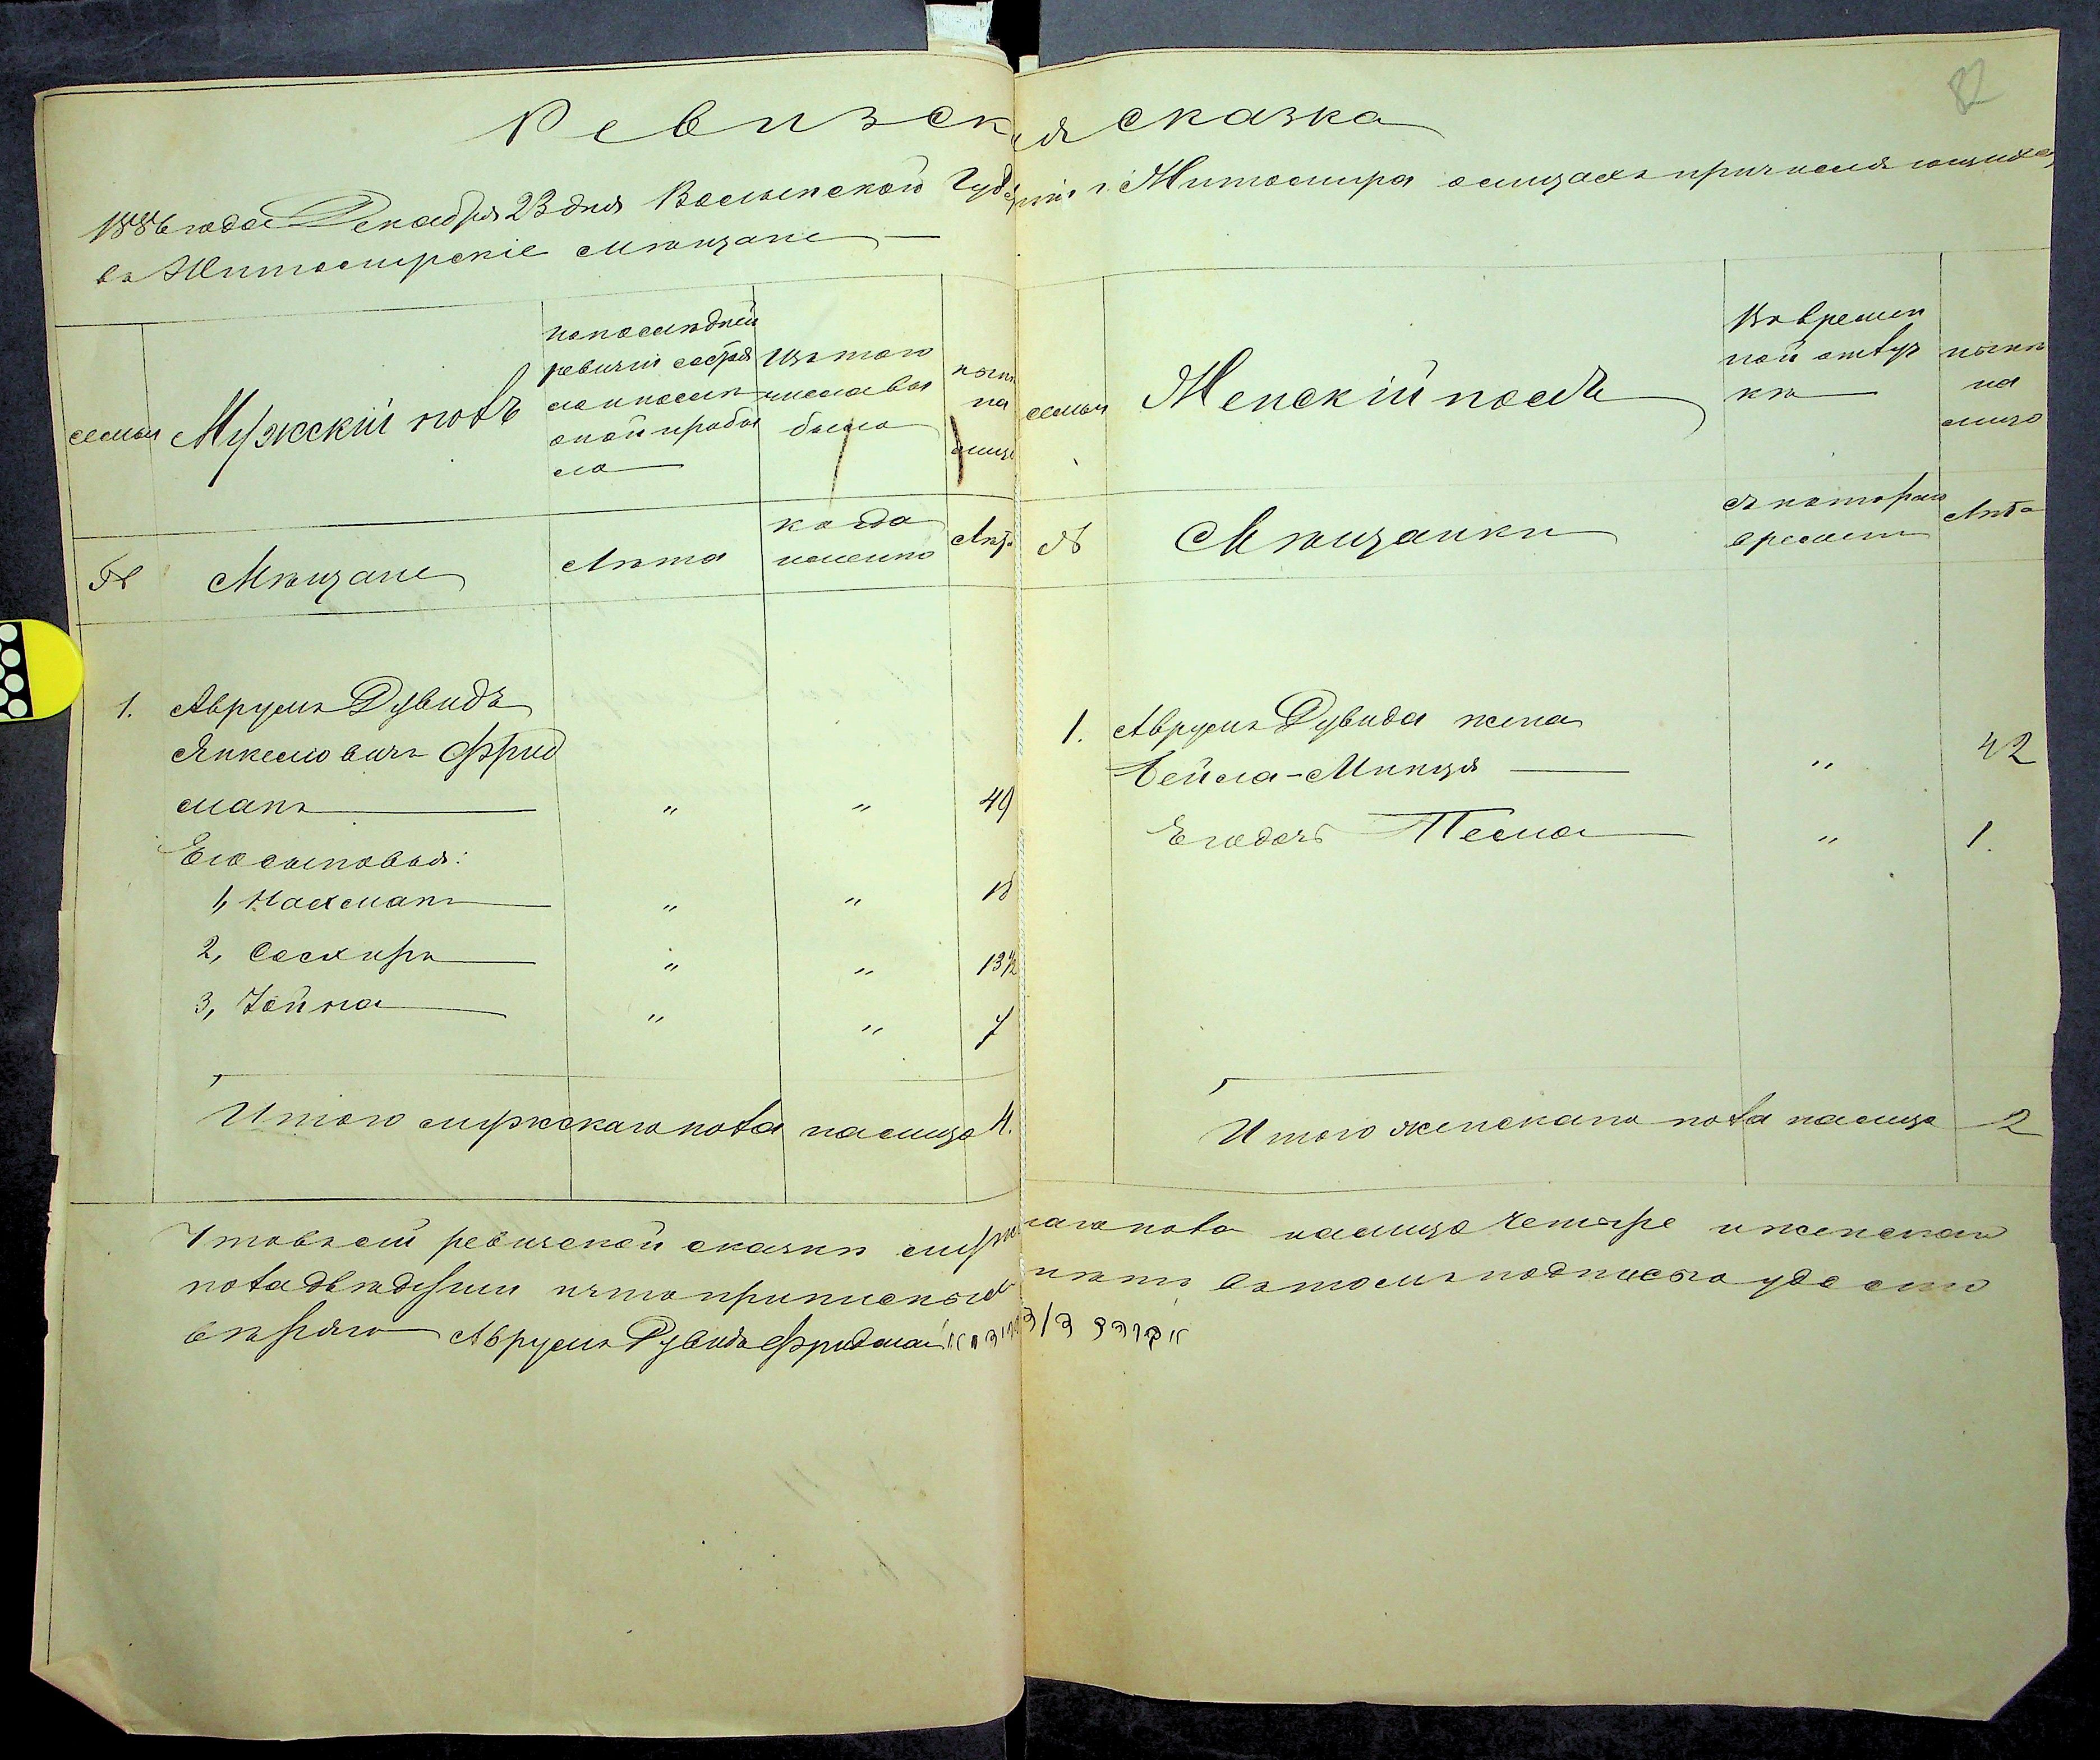 82
Ревизская сказка
1886 года Декабря 23 дня Волынской Губернии г. Житомира о лицахъ причисляющихся
въ Житомирскіе мѣщане
семьи
Мужскій полъ
по последней
ревизіи состоя
ло и после
оной прибы
ло
Изъ того
числа вы
было
нынѣ
на
лицо
№
Мѣщане
Лѣта
когда
именно
Лѣта
1. Аврумъ Дувидъ
Янкелевичъ Фрид
манъ " " 49
Его сыновья:
1, Нахманъ " " 18
2, " " 13½
3, Хойна " " 7
Итого мужскаго пола налицо 4.
семьи
Женскій полъ
Во времен
ной отлуч
кѣ
нынѣ
на
лицо
№
Мѣщанки
съ котораго
времени
Лѣта
1. Аврумъ Дувида жена
Бейла-Минця " 42
Его дочь Песма " 1.
Итого женскаго пола налицо 2
Что въ сей ревизской сказки мужскаго пола налицо четыре и женскаго
пола двѣ души и что прописныхъ нѣтъ въ томъ подписью удосто
вѣряю Аврумъ Дувидъ Фридманъ